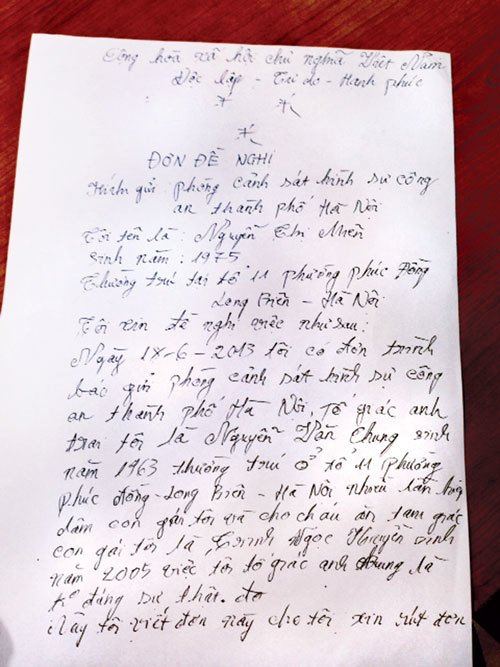 Cộng hoà xã hội chủ nghĩa Việt Nam
Độc lập - Tự do - Hạnh phúc
ĐƠN ĐỀ NGHỊ
Kính gửi: phòng cảnh sát hình sự công
an thành phố Hà Nội
Tôi tên là: Nguyễn Thị Miên
Sinh năm: 1975
Thường trú tại tổ 11 phường phúc Đồng
Long Biên - Hà Nội
Tôi xin đề nghị việc như sau:
Ngày 18-6-2013 tôi có đơn trình
báo gửi phòng cảnh sát hình sự công
an thành phố Hà Nội, tố giác anh
trai tôi là Nguyễn Văn Chung sinh
năm 1963 thường trú ở tổ 11 phường
phúc đồng - Long Biên - Hà Nội nhiều lần
dâm con gái tôi và cho cháu ăn
con gái tôi là Ngọc sinh
năm 2005 việc tôi tố giác anh chung là
ko đúng sự thật. do
Nay tôi viết đơn này cho tôi xin rút đơn